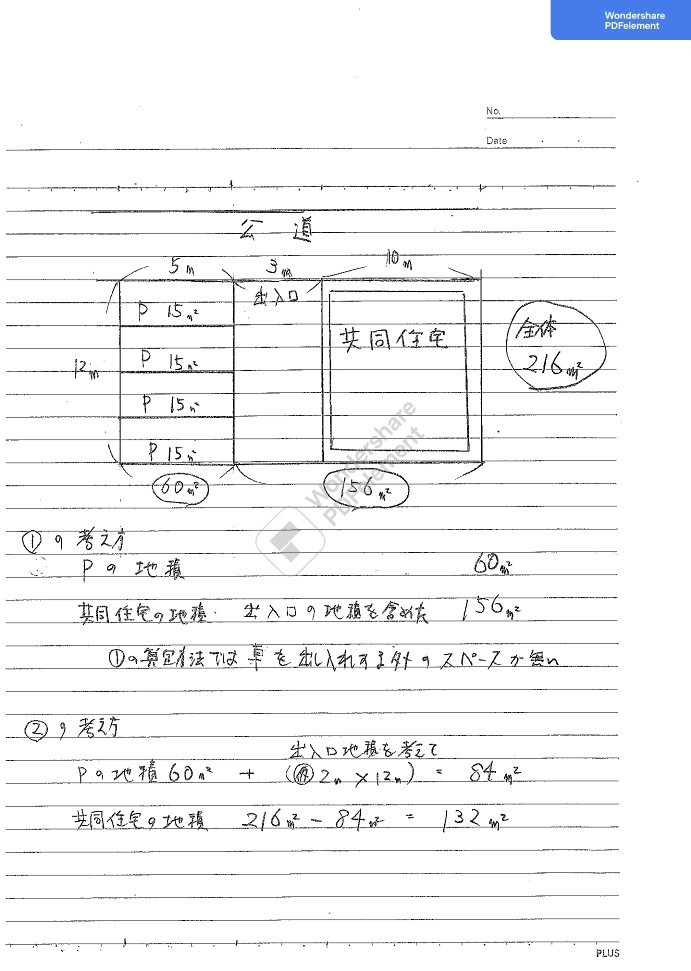 Wondershare
PDFelement
No.
Date
公道
5m 3m 10m
出入口
P 15m²
共同住宅
全体
216m²
P 15m²
12m
P 15m²
P 15m²
60m² 156m²
Wondershare
PDFelement
①の考え方
Pの地積 60m²
共同住宅の地積・出入口の地積を含めた 156m²
①の算定方法では車を出し入れするためのスペースが無い
②の考え方
出入口地積を考えて
Pの地積60m² + (2m×12m) = 84m²
共同住宅の地積 216m² - 84m² = 132m²
PLUS